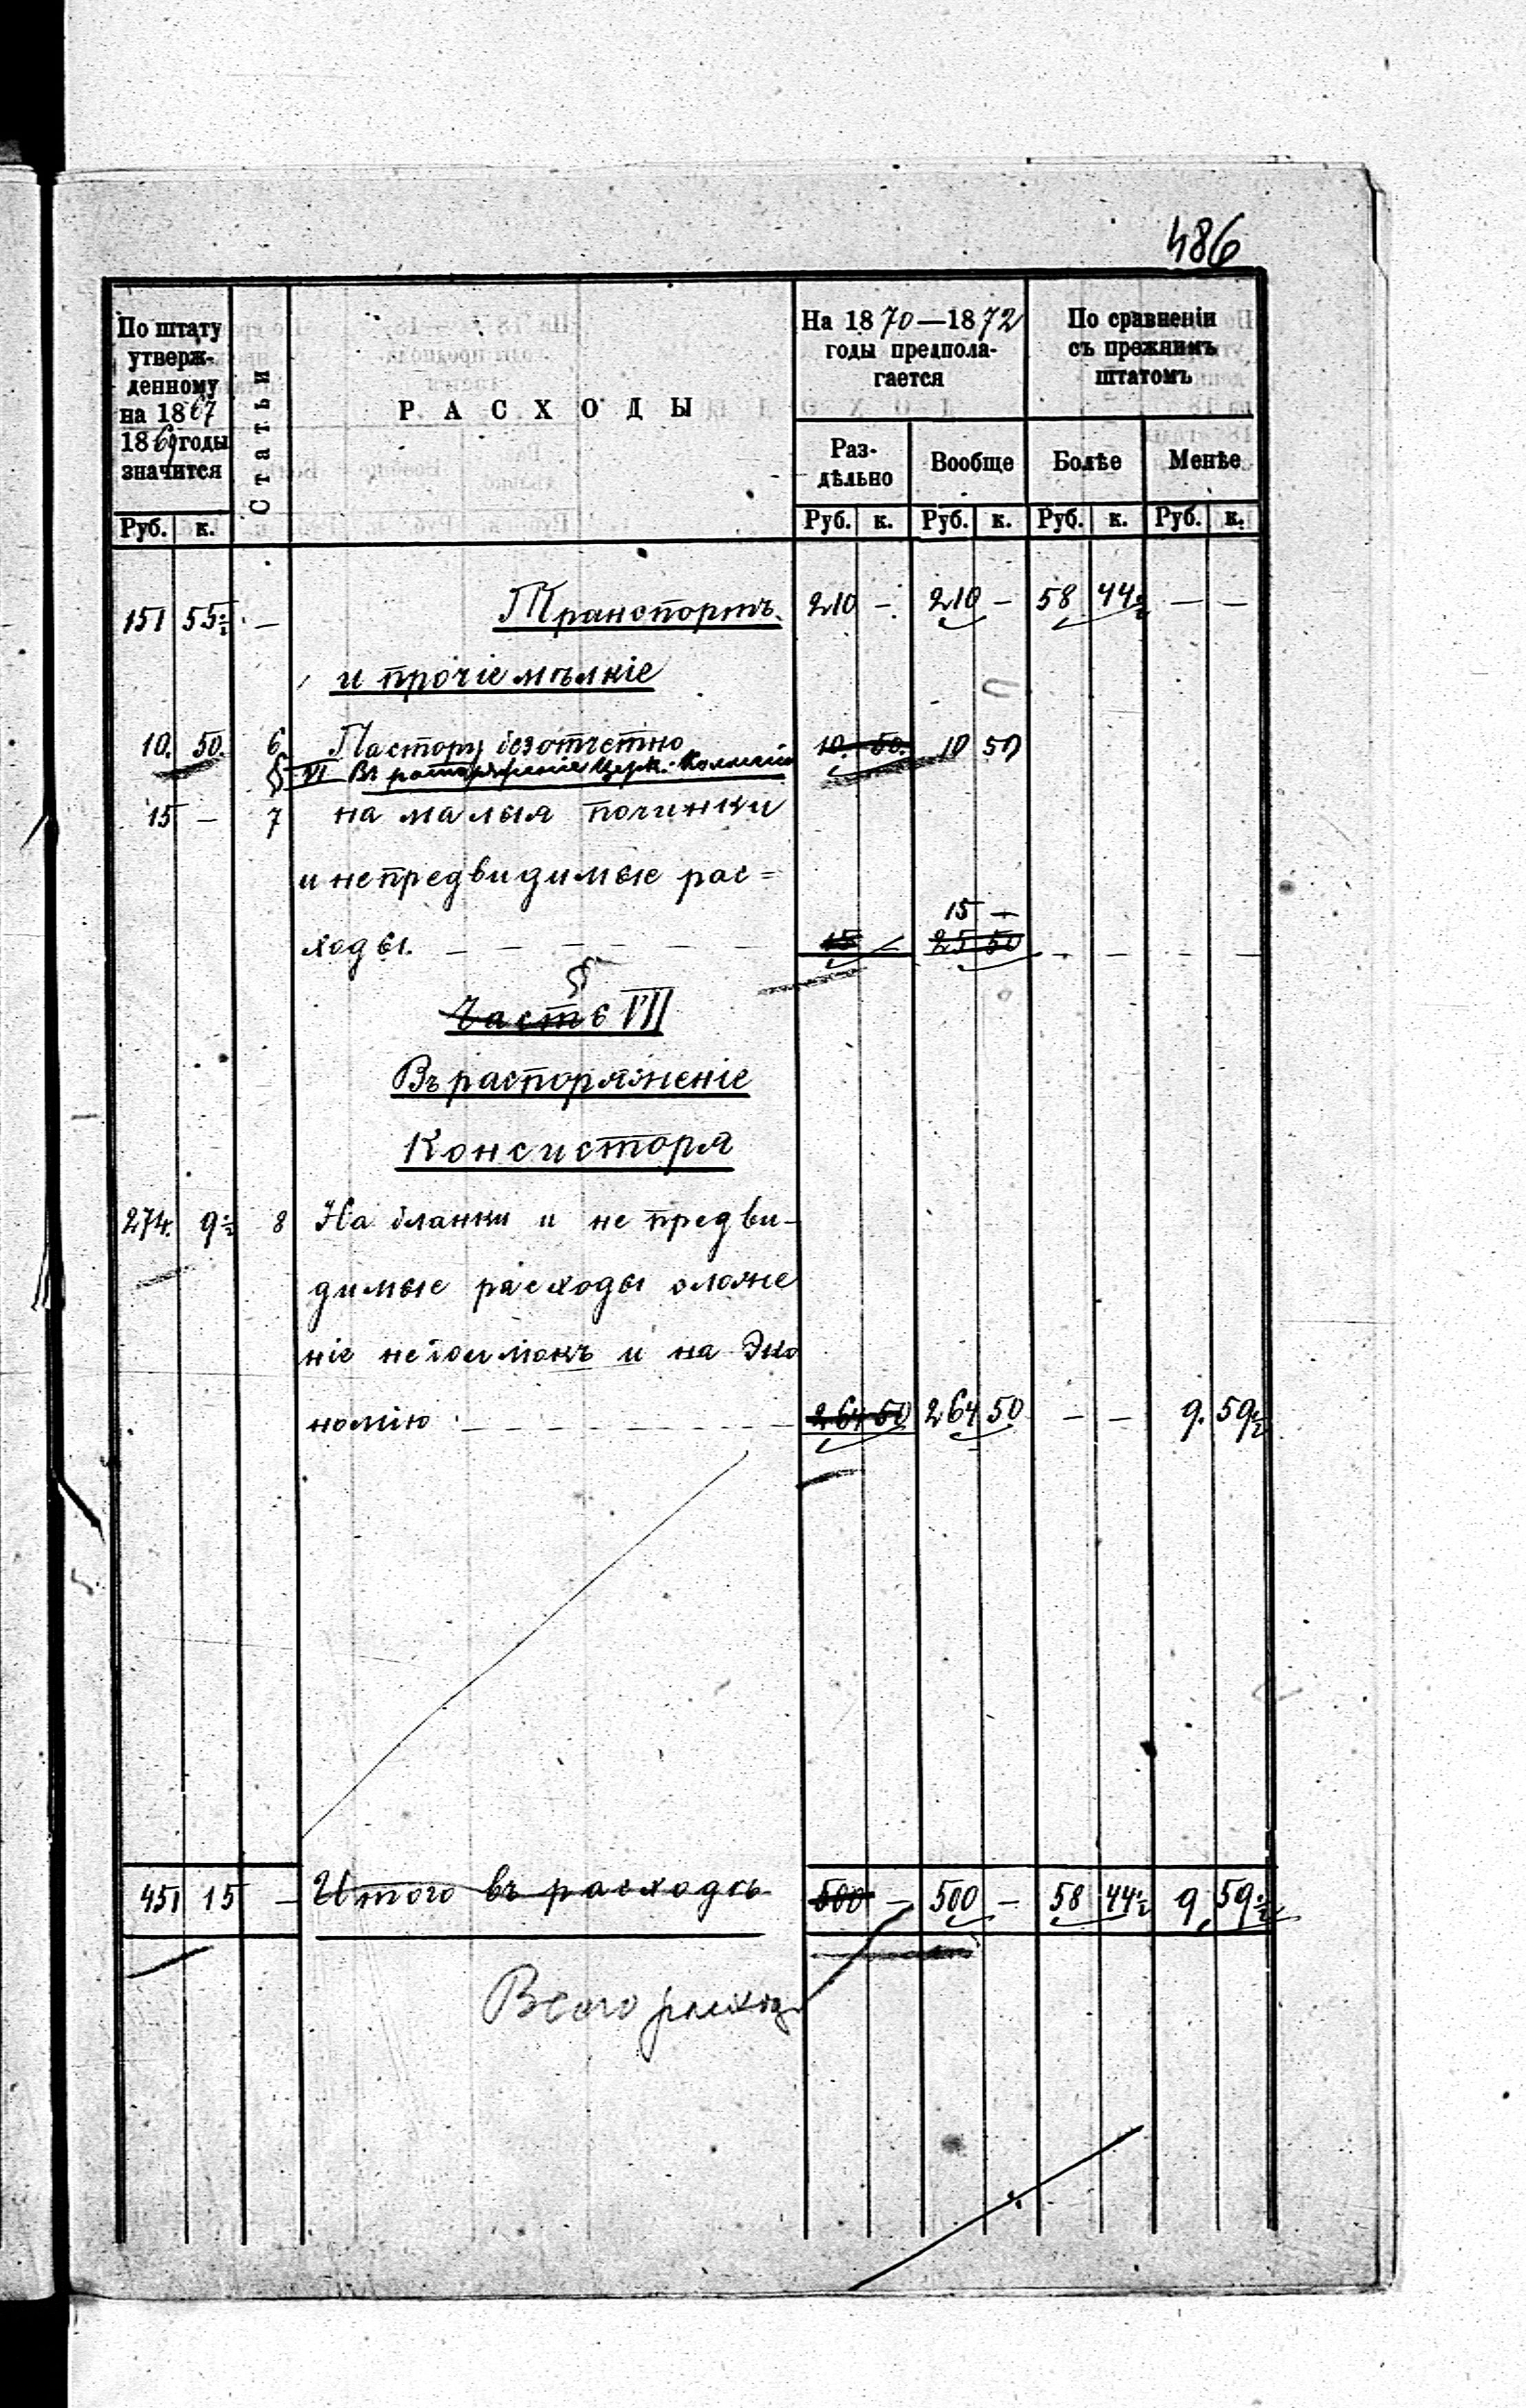 486
По штату утвержденному на 1867 1869 годы значится
Статьи
РАСХОДЫ
На 1870—1872 годы предполагается
По сравненію съ прежнимъ штатомъ
Раздѣльно
Вообще
Болѣе
Менѣе
Руб. к. Руб. к. Руб. к. Руб. к. Руб. к.
151 55½ — Транспортъ. 210 — 210 — 58 44½ — —
и прочіе мѣлкіе
10. 50. 6 Пастору безотчетно 10. 50. 10 50
§ VI Въ распоряженіе Церк. Коллегіи
15 — 7 на малыя починки
и непредвидимые рас=
15 —
ходы. — — — — — — 15 — 25 50 — — — —
§
Часть VII
Въ распоряженіе
Консисторя
274. 9½ 8 На бланки и не предви-
димые расходы сложе
ніе недоимокъ и на Эко
номію 264 50 264 50 — — 9. 59½
451 15 — Итого въ расходѣ 500 — 500 — 58 44½ 9. 59½
Всего расхода